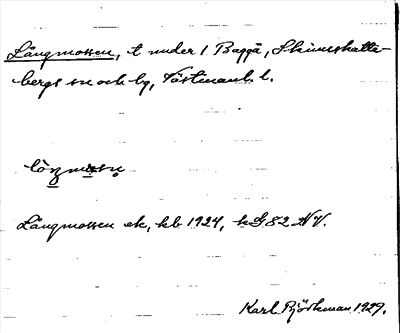 Långmossen, t under 1 Baggå, Skinnskatte-
bergs sn och by, Västmanl. l.
Långmossen ek, kb 1924, h G 82 NV.
Karl Björkman 1929.